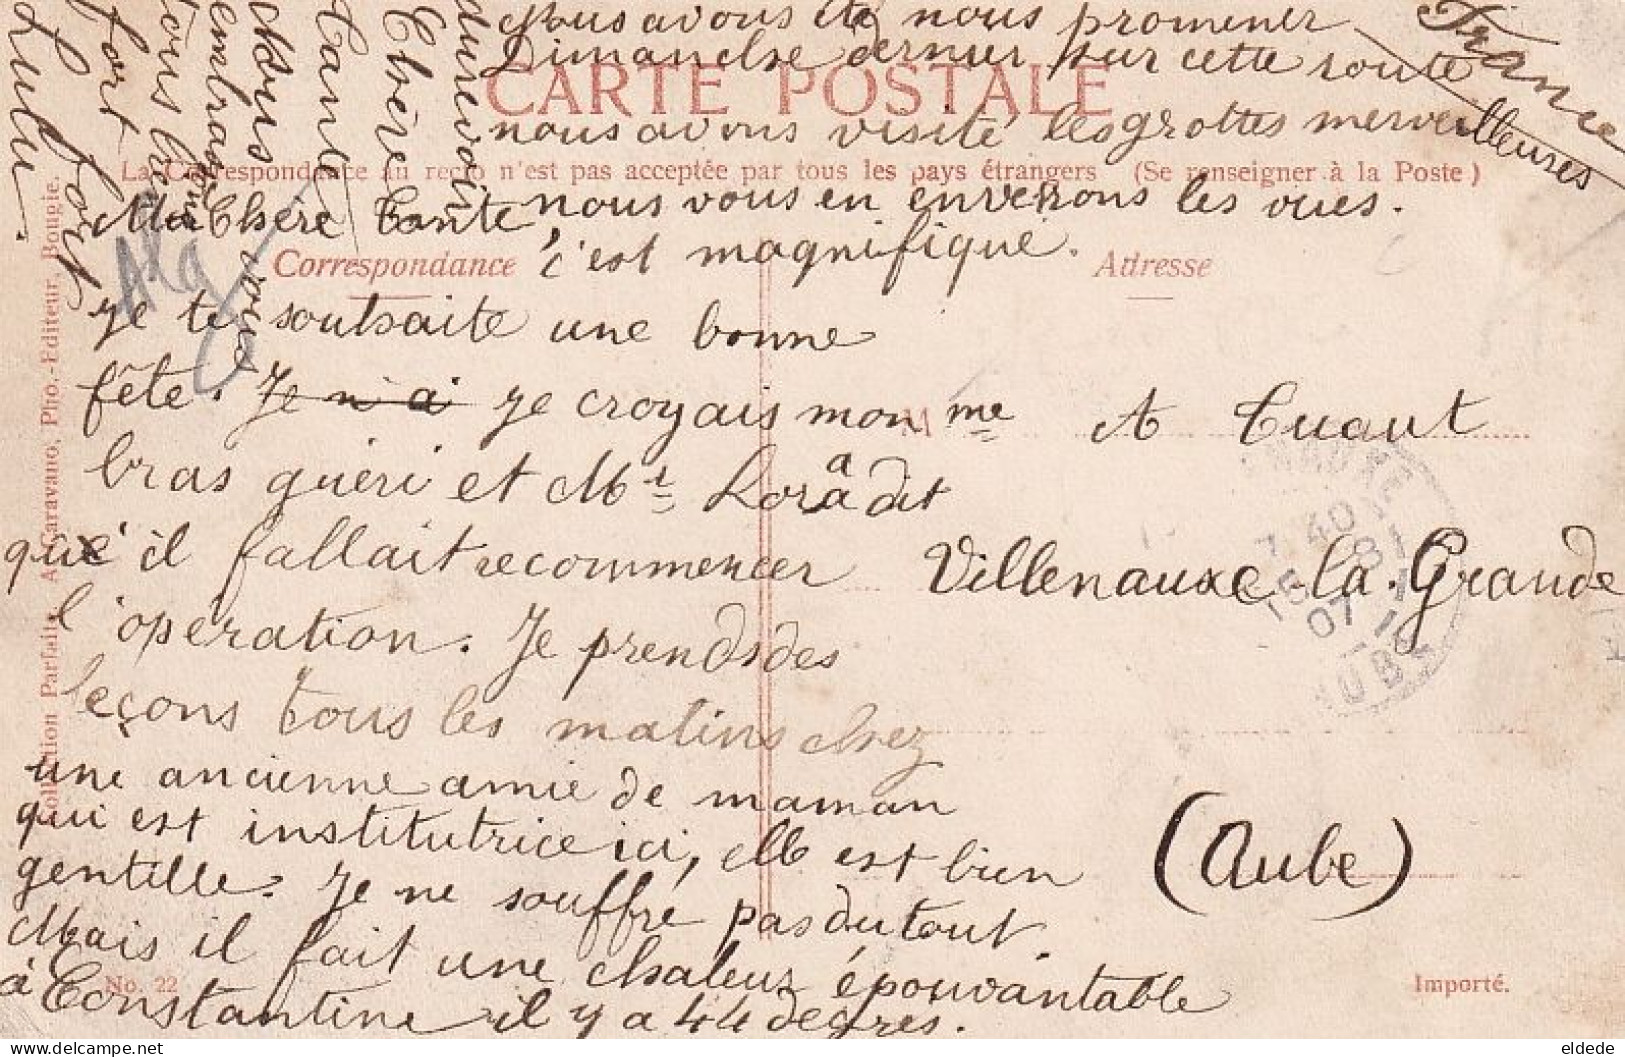 Ma Chère Tante
Je te souhaite une bonne
fête. Je n'ai je croyais mon
bras guéri et Mr Lora a dit
que il fallait recommencer
l'opération. Je prends des
leçons tous les matins chez
une ancienne amie de maman
qui est institutrice ici, elle est bien
gentille. Je ne souffre pas du tout.
Mais il fait une chaleur épouvantable
à Constantine il y a 44 degrés.
Nous avons été nous promener
Dimanche dernier sur cette route
nous avons visité les grottes merveilleuses
nous vous en enverrons les vues.
c'est magnifique.
Au revoir
Chère
Tante
Nous
embrassons
tous
fort fort
Lulu.
France
CARTE POSTALE
La Correspondance au recto n'est pas acceptée par tous les pays étrangers (Se renseigner à la Poste)
Correspondance
Adresse
Alg
M me A Tuaut
Villenauxe-la-Grande
(Aube)
7 40
15 8
07
AUBE
Collection Parfaite, A. Caravano, Pho.-Editeur, Bougie.
No. 22
Importé.
eldede